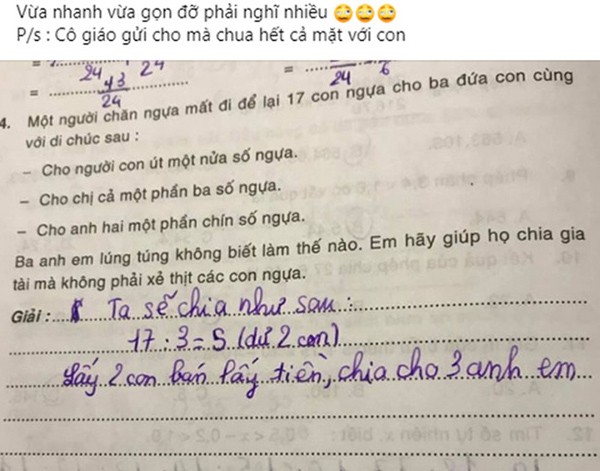 Vừa nhanh vừa gọn đỡ phải nghĩ nhiều 🙄🙄🙄
P/s : Cô giáo gửi cho mà chua hết cả mặt với con
= 24 24 = 24 6
= 43/24
4. Một người chăn ngựa mất đi để lại 17 con ngựa cho ba đứa con cùng
với di chúc sau :
– Cho người con út một nửa số ngựa.
– Cho chị cả một phần ba số ngựa.
– Cho anh hai một phần chín số ngựa.
Ba anh em lúng túng không biết làm thế nào. Em hãy giúp họ chia gia
tài mà không phải xẻ thịt các con ngựa.
Giải : Ta sẽ chia như sau :
17 : 3 = 5 (dư 2 con)
Lấy 2 con bán lấy tiền, chia cho 3 anh em